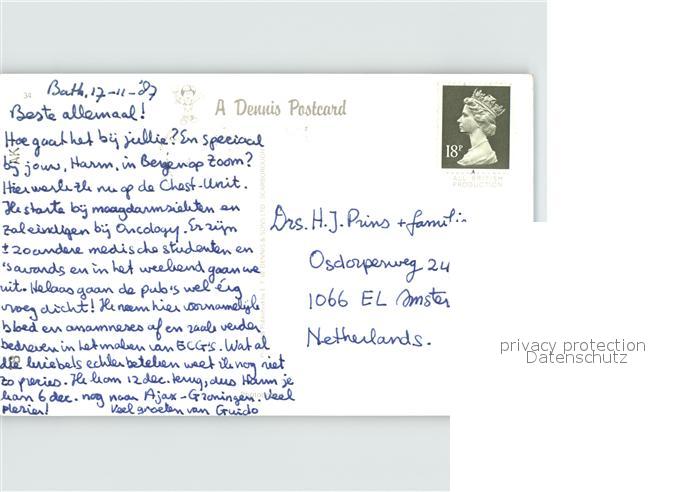 34
Bath, 17-11-'87
A Dennis Postcard
Beste allemaal!
Hoe gaat het bij jullie? En speciaal
bij jouw, Harm, in Bergen op Zoom?
Hier werk ik nu op de Chest-Unit.
Ik startte bij maagdarmziekten en
zal eindigen bij Oncology. Er zijn
± 20 andere medische studenten en
's avonds en in het weekend gaan we
uit. Helaas gaan de pub's wel erg
vroeg dicht! Ik neem hier voornamelijk
bloed en anamneses af en raak verder
bedreven in het maken van ECG's. Wat al
die kriebels echter betekenen weet ik nog niet
zo precies. Ik kom 12 dec. terug, dus Harm je
kan 6 dec. nog naar Ajax-Groningen. Veel
plezier! Veel groeten van Guido
18P
ALL BRITISH
PRODUCTION
Drs. H. J. Prins + familie
Osdorperweg 24
1066 EL Amster
Netherlands.
privacy protection
Datenschutz